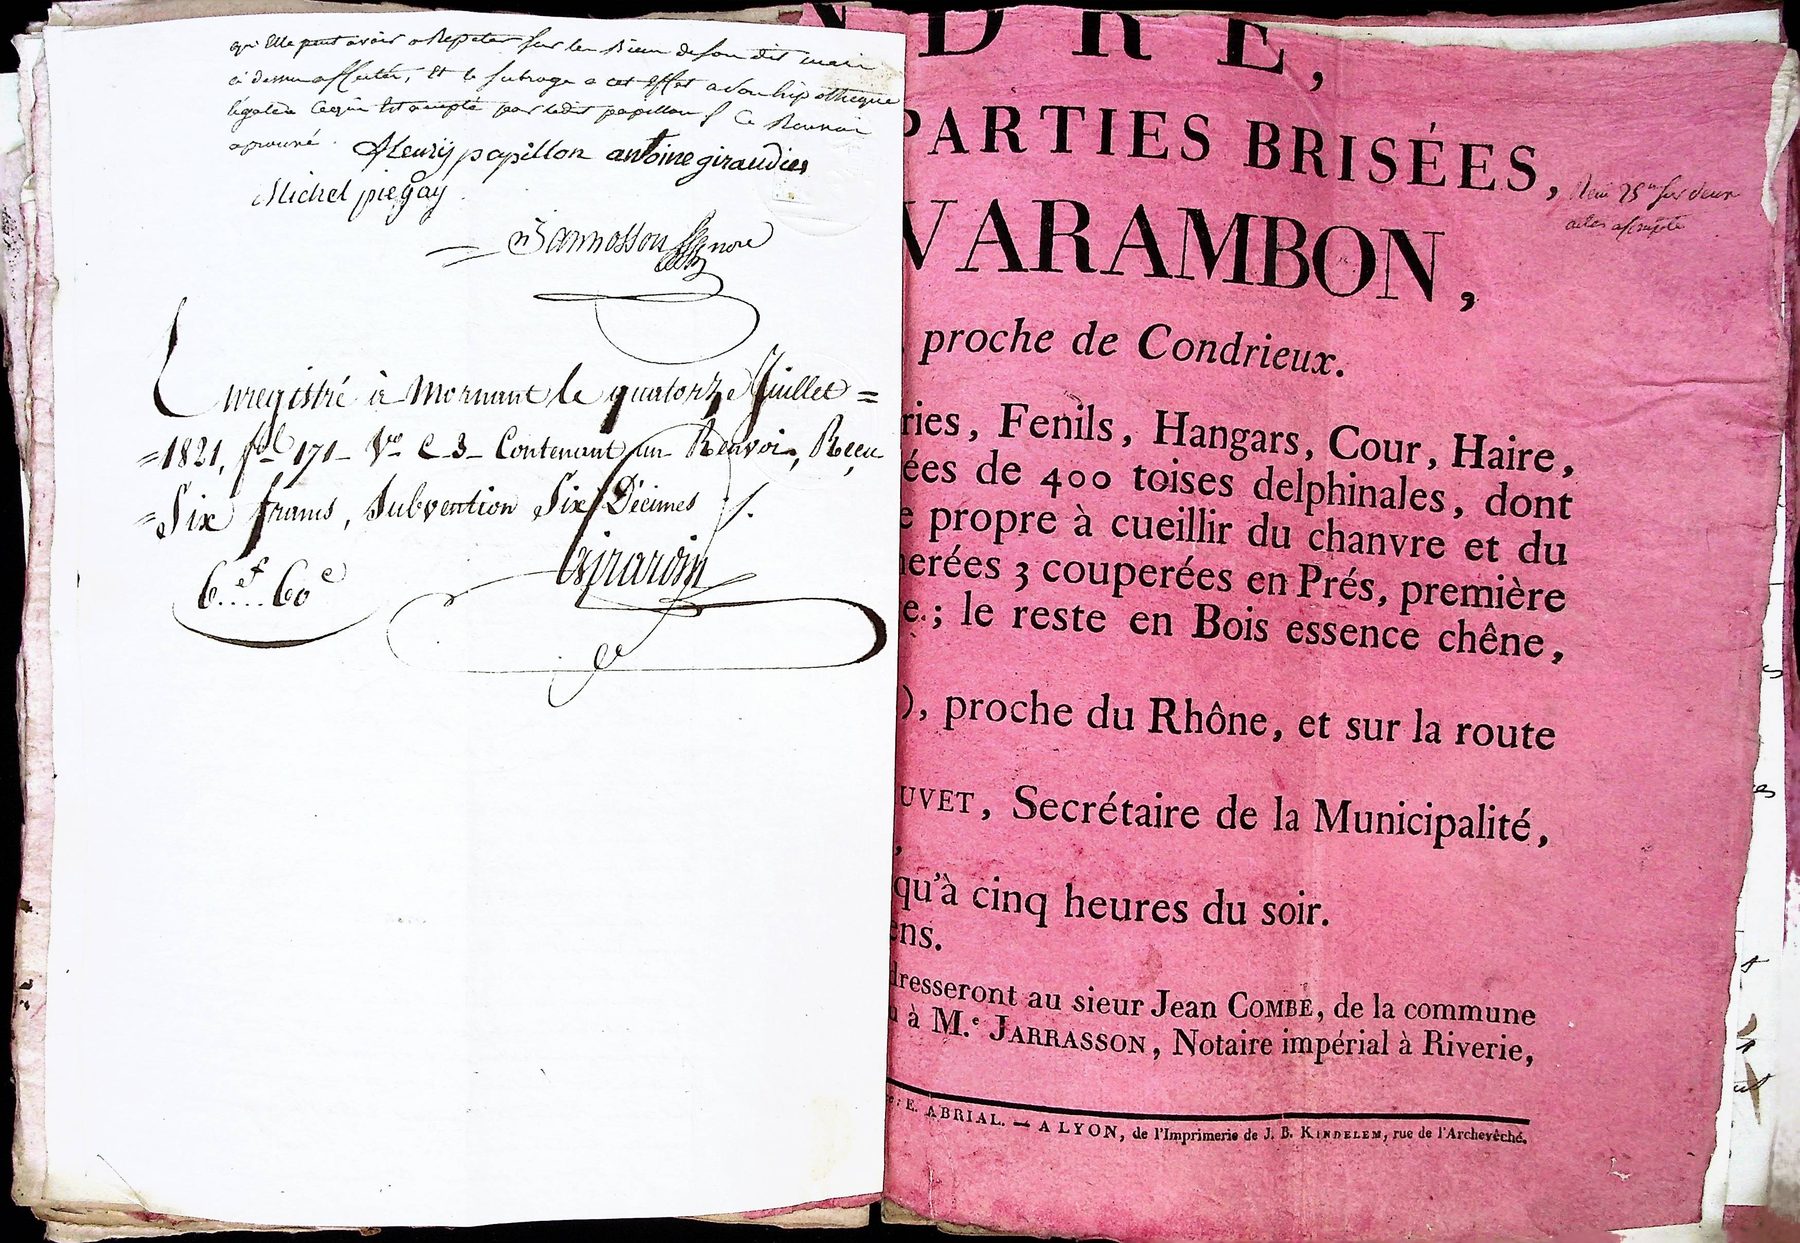 qu'Elle peut avoir a Repeter sur les Biens de son dit mari
ci dessus affectés, Et le subroge a cet effet a son hipothèque
légale Ce qui Est accepté par ledit papillon Ce Renvoi
aprouvé.
fleury papillon antoine giraudier
Michel piegay
Enregistré à Mornant le quatorze Juillet =
=1821, fol 171 Vo C 3 Contenant un Renvoi, Reçu
=Six francs, Subvention Six Décimes
6f....60c
Girardin
NDRE,
PARTIES BRISÉES,
VARAMBON,
proche de Condrieux.
ries, Fenils, Hangars, Cour, Haire,
ées de 400 toises delphinales, dont
e propre à cueillir du chanvre et du
erées 3 couperées en Prés, première
e.; le reste en Bois essence chêne,
), proche du Rhône, et sur la route
UVET, Secrétaire de la Municipalité,
qu'à cinq heures du soir.
ens.
dresseront au sieur Jean COMBE, de la commune
à M.e JARRASSON, Notaire impérial à Riverie,
: E. ABRIAL. — A LYON, de l'Imprimerie de J. B. KINDELEM, rue de l'Archevêché.